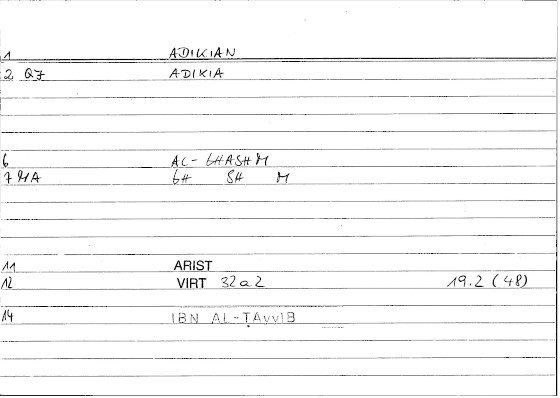 1 ADIKIAN
2 Q7 ADIKIA
6 AL-GHASHM
7 MA GH SH M
11 ARIST
12 VIRT 32a2 19.2 (48)
14 IBN AL-TAyyIB